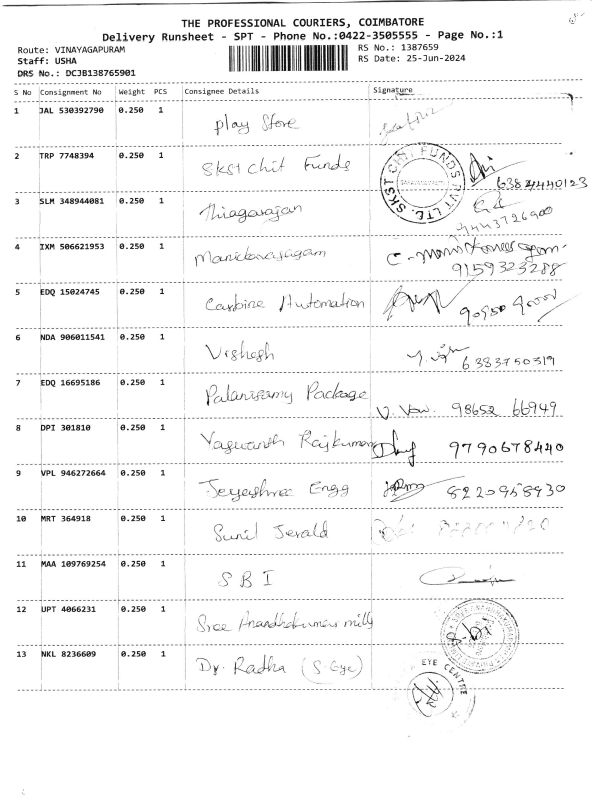 THE PROFESSIONAL COURIERS, COIMBATORE
Delivery Runsheet - SPT - Phone No.:0422-3505555 - Page No.:1
Route: VINAYAGAPURAM
RS No.: 1387659
Staff: USHA
RS Date: 25-Jun-2024
DRS No.: DCJB138765901
S No Consignment No Weight PCS Consignee Details Signature
1 JAL 530392790 0.250 1 Play Store
2 TRP 7748394 0.250 1 SKST Chit Funds 6384440123
SKST CHIT FUNDS PVT LTD.
3 SLM 348944081 0.250 1 Thiagarajan
4 IXM 506621953 0.250 1 Manickavasagam 9159323288
5 EDQ 15024745 0.250 1 Carbine Automation
6 NDA 906011541 0.250 1 Vishesh 6383750319
7 EDQ 16695186 0.250 1 Palanisamy Package 98652 66949
8 DPI 301810 0.250 1 Yaswanth Rajkumar 9790678440
9 VPL 946272664 0.250 1 Jeyashree Engg 8220958930
10 MRT 364918 0.250 1 Sunil Jerald
11 MAA 109769254 0.250 1 SBI
12 UPT 4066231 0.250 1 Sree Anandhakumar mills
13 NKL 8236609 0.250 1 Dr. Radha (S. Eye)
EYE CENTRE